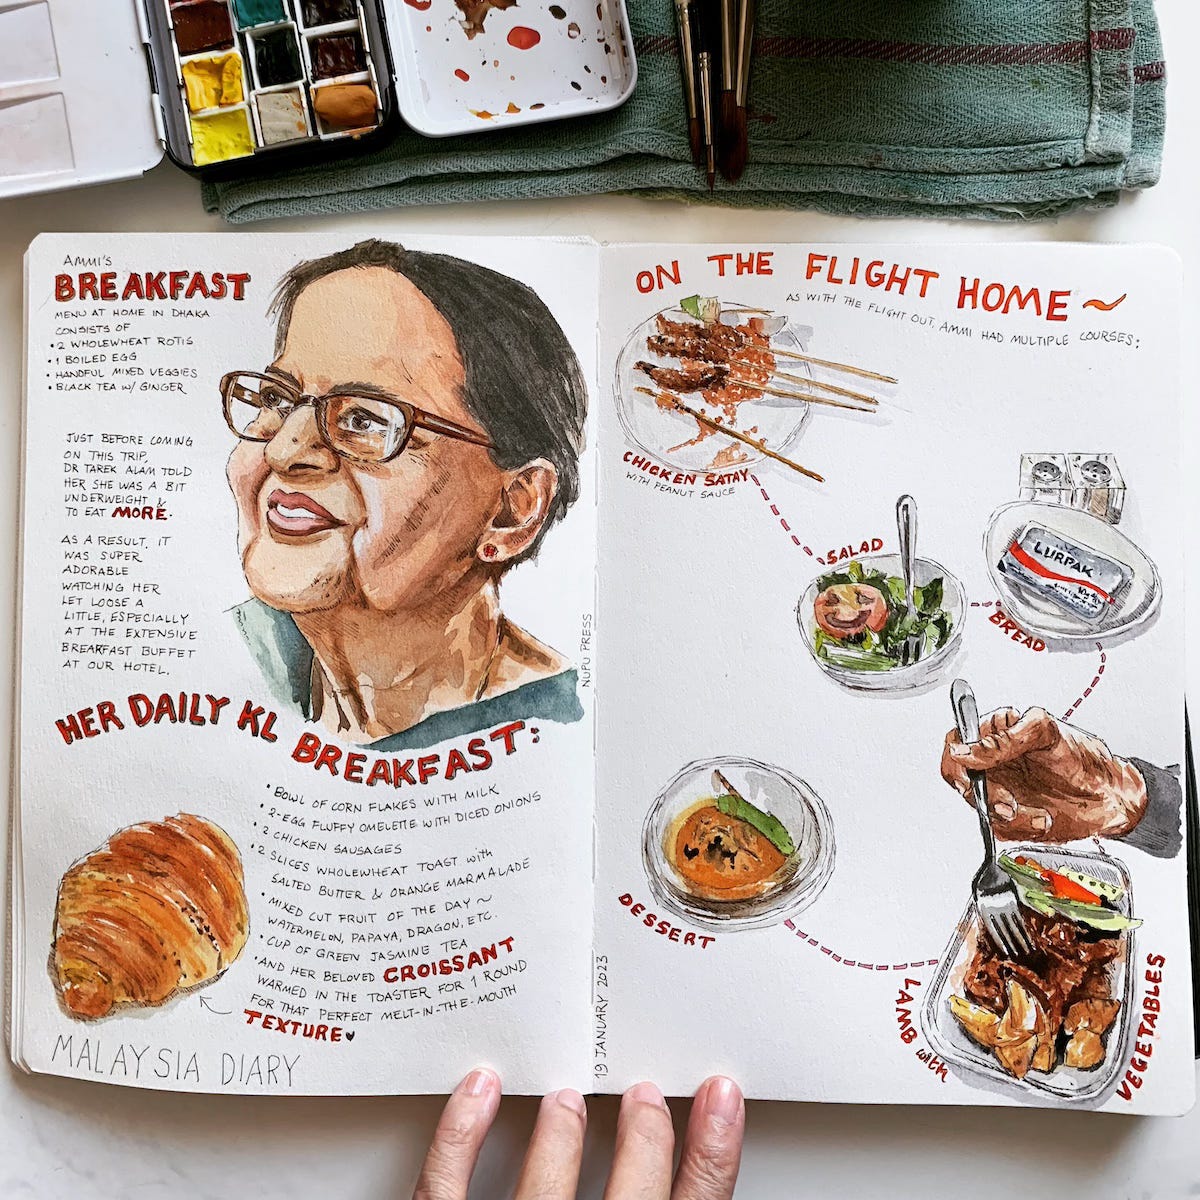 AMMI'S
BREAKFAST
MENU AT HOME IN DHAKA
CONSISTS OF
• 2 WHOLEWHEAT ROTIS
• 1 BOILED EGG
• HANDFUL MIXED VEGGIES
• BLACK TEA W/ GINGER
JUST BEFORE COMING
ON THIS TRIP,
DR TAREK ALAM TOLD
HER SHE WAS A BIT
UNDERWEIGHT &
TO EAT MORE.
AS A RESULT, IT
WAS SUPER
ADORABLE
WATCHING HER
LET LOOSE A
LITTLE, ESPECIALLY
AT THE EXTENSIVE
BREAKFAST BUFFET
AT OUR HOTEL.
NUPU PRESS
HER DAILY KL
BREAKFAST:
• BOWL OF CORN FLAKES WITH MILK
• 2-EGG FLUFFY OMELETTE WITH DICED ONIONS
• 2 CHICKEN SAUSAGES
• 2 SLICES WHOLEWHEAT TOAST with
SALTED BUTTER & ORANGE MARMALADE
• MIXED CUT FRUIT OF THE DAY ~
WATERMELON, PAPAYA, DRAGON, ETC.
• CUP OF GREEN JASMINE TEA
• AND HER BELOVED CROISSANT
WARMED IN THE TOASTER FOR 1 ROUND
FOR THAT PERFECT MELT-IN-THE-MOUTH
TEXTURE
MALAYSIA DIARY
19 JANUARY 2023
ON THE FLIGHT HOME ~
AS WITH THE FLIGHT OUT, AMMI HAD MULTIPLE COURSES:
CHICKEN SATAY
WITH PEANUT SAUCE
SALAD
LURPAK
BREAD
DESSERT
LAMB with
VEGETABLES